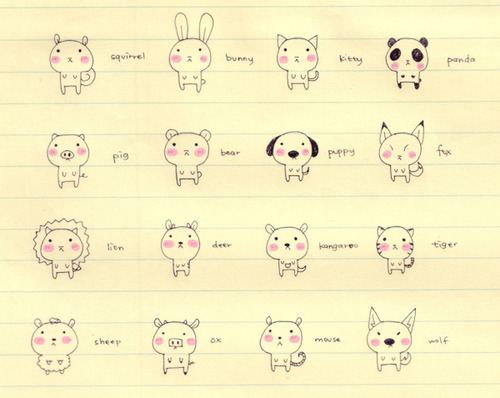 squirrel bunny kitty panda
pig bear puppy fox
lion deer kangaroo tiger
sheep ox mouse wolf